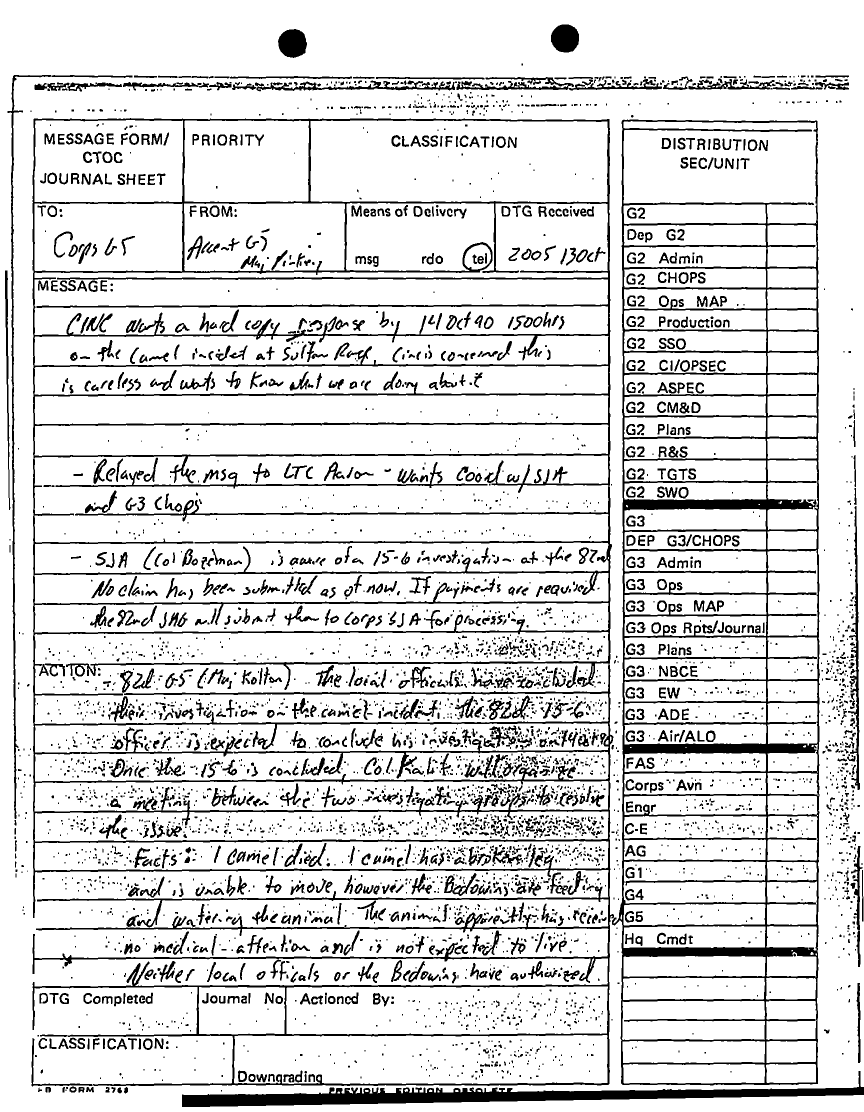 MESSAGE FORM/
CTOC
JOURNAL SHEET
PRIORITY
CLASSIFICATION
TO:
Corps G5
FROM:
Arcent G5
Maj
Means of Delivery
msg rdo tel
DTG Received
2005 13Oct
MESSAGE:
CINC wants a hard copy response by 14 Oct 90 1500hrs
on the Camel incident at Sultan Range, Cinc is concerned this
is careless and wants to know what we are doing about it
- Relayed the msg to LTC - Wants Coord w/SJA
and G3 Chops
- SJA (Col Bozeman) is aware of a 15-6 investigation at the 82nd
No claim has been submitted as of now. If payments are required
the 82nd JAG will submit them to Corps SJA for processing.
ACTION:
- 82d G5 (Maj Kolton) The local officals have concluded
their investigation on the camel incident. The 82d 15-6
officer is expected to conclude his investigation on 14Oct90
Once the 15-6 is concluded, Col. will organize
a meeting between the two investigating groups to resolve
the issue.
Facts: 1 camel died. 1 camel has a broken leg
and is unable to move, however the Bedowins are feeding
and watering the animal. The animal apparently has received
no medical attention and is not expected to live.
Neither local officals or the Bedowins have authorized
DTG Completed
Journal No
Actioned By:
CLASSIFICATION:
Downgrading
FORM 2768
PREVIOUS EDITION OBSOLETE
DISTRIBUTION
SEC/UNIT
G2
Dep G2
G2 Admin
G2 CHOPS
G2 Ops MAP
G2 Production
G2 SSO
G2 CI/OPSEC
G2 ASPEC
G2 CM&D
G2 Plans
G2 R&S
G2 TGTS
G2 SWO
G3
DEP G3/CHOPS
G3 Admin
G3 Ops
G3 Ops MAP
G3 Ops Rpts/Journal
G3 Plans
G3 NBCE
G3 EW
G3 ADE
G3 Air/ALO
FAS
Corps Avn
Engr
C-E
AG
G1
G4
G5
Hq Cmdt